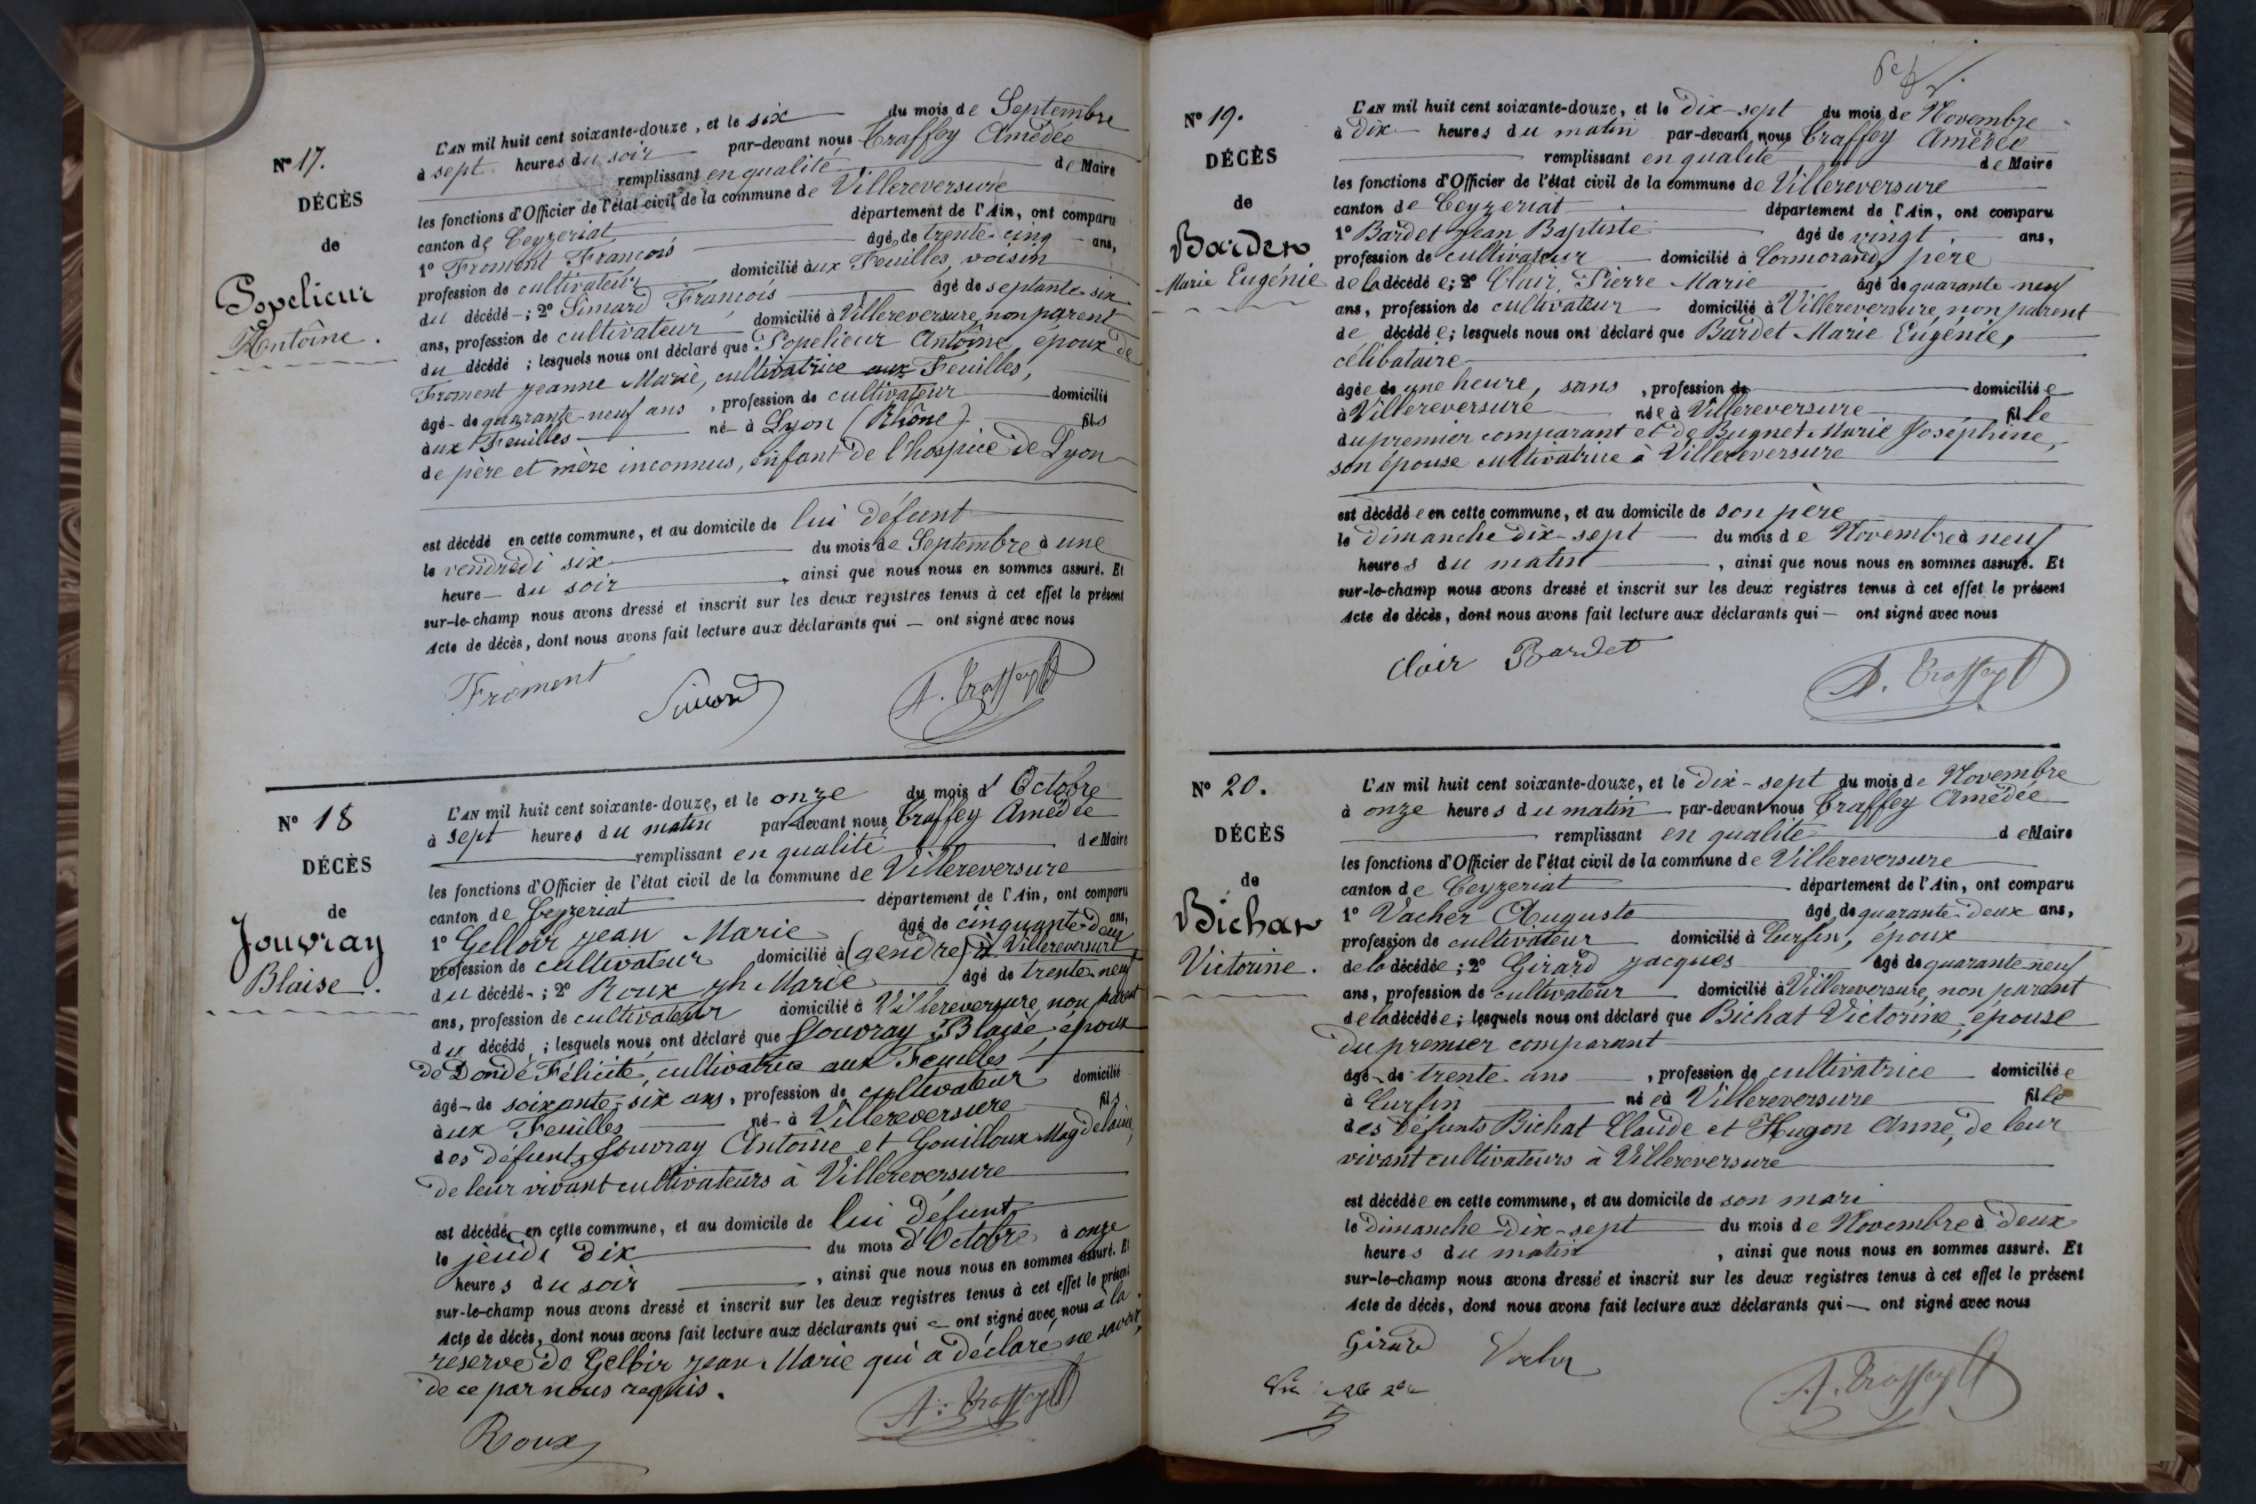 N° 17.
DÉCÈS
de
Popelieur
Antoine.
L'AN mil huit cent soixante-douze, et le six du mois de Septembre
à sept heures du soir par-devant nous Traffey Amédée
remplissant en qualité de Maire
les fonctions d'Officier de l'état civil de la commune de Villereversure
canton de Ceyzeriat département de l'Ain, ont comparu
1° Froment François âgé de trente-cinq ans,
profession de cultivateur domicilié aux Feuilles, voisin
du décédé; 2° Simard François âgé de septante six
ans, profession de cultivateur domicilié à Villereversure, non parent
du décédé; lesquels nous ont déclaré que Popelieur Antoine, époux de
Froment Jeanne Marie, cultivatrice aux Feuilles,
âgé de quarante-neuf ans, profession de cultivateur domicilié
aux Feuilles né à Lyon (Rhône) fils
de père et mère inconnus, enfant de l'hospice de Lyon
est décédé en cette commune, et au domicile de lui défunt
le vendredi six du mois de Septembre à une
heure du soir, ainsi que nous nous en sommes assuré. Et
sur-le-champ nous avons dressé et inscrit sur les deux registres tenus à cet effet le présent
Acte de décès, dont nous avons fait lecture aux déclarants qui — ont signé avec nous
Froment Simard A. Traffey
N° 18
DÉCÈS
de
Jouvray
Blaise.
L'AN mil huit cent soixante-douze, et le onze du mois d'Octobre
à sept heures du matin par-devant nous Traffey Amédée
remplissant en qualité de Maire
les fonctions d'Officier de l'état civil de la commune de Villereversure
canton de Ceyzeriat département de l'Ain, ont comparu
1° Gelloir Jean Marie âgé de cinquante-deux ans,
profession de cultivateur domicilié à (gendre) à Villereversure
du décédé; 2° Roux Jh Marie âgé de trente neuf
ans, profession de cultivateur domicilié à Villereversure, non parent
du décédé; lesquels nous ont déclaré que Jouvray Blaise, époux
de Dondé Félicité, cultivatrice aux Feuilles
âgé de soixante-six ans, profession de cultivateur domicilié
aux Feuilles né à Villereversure fils
des défunts Jouvray Antoine et Gouilloux Magdelaine,
de leur vivant cultivateurs à Villereversure
est décédé en cette commune, et au domicile de lui défunt
le jeudi dix du mois d'Octobre à onze
heures du soir, ainsi que nous nous en sommes assuré. Et
sur-le-champ nous avons dressé et inscrit sur les deux registres tenus à cet effet le présent
Acte de décès, dont nous avons fait lecture aux déclarants qui — ont signé avec nous à la
réserve de Gelloir Jean Marie qui a déclaré ne savoir,
de ce par nous requis.
Roux A. Traffey
N° 19.
DÉCÈS
de
Bardet
Marie Eugénie
L'AN mil huit cent soixante-douze, et le dix-sept du mois de Novembre
à dix heures du matin par-devant nous Traffey Amédée
remplissant en qualité de Maire
les fonctions d'Officier de l'état civil de la commune de Villereversure
canton de Ceyzeriat département de l'Ain, ont comparu
1° Bardet Jean Baptiste âgé de vingt ans,
profession de cultivateur domicilié à Cormorand, père
de la décédée; 2° Clair Pierre Marie âgé de quarante neuf
ans, profession de cultivateur domicilié à Villereversure, non parent
de décédée; lesquels nous ont déclaré que Bardet Marie Eugénie,
célibataire
âgée de une heure, sans, profession de domiciliée
à Villereversure née à Villereversure fille
du premier comparant et de Bugnet Marie Joséphine,
son épouse cultivatrice à Villereversure
est décédée en cette commune, et au domicile de son père
le dimanche dix-sept du mois de Novembre à neuf
heures du matin, ainsi que nous nous en sommes assuré. Et
sur-le-champ nous avons dressé et inscrit sur les deux registres tenus à cet effet le présent
Acte de décès, dont nous avons fait lecture aux déclarants qui — ont signé avec nous
Clair Bardet A. Traffey
N° 20.
DÉCÈS
de
Bichat
Victorine.
L'AN mil huit cent soixante-douze, et le dix-sept du mois de Novembre
à onze heures du matin par-devant nous Traffey Amédée
remplissant en qualité de Maire
les fonctions d'Officier de l'état civil de la commune de Villereversure
canton de Ceyzeriat département de l'Ain, ont comparu
1° Vacher Auguste âgé de quarante-deux ans,
profession de cultivateur domicilié à Curfin, époux
de la décédée; 2° Girard Jacques âgé de quarante neuf
ans, profession de cultivateur domicilié à Villereversure, non parent
de la décédée; lesquels nous ont déclaré que Bichat Victorine, épouse
du premier comparant
âgé de trente ans, profession de cultivatrice domiciliée
à Curfin née à Villereversure fille
des défunts Bichat Claude et Hugon Anne, de leur
vivant cultivateurs à Villereversure
est décédée en cette commune, et au domicile de son mari
le dimanche dix-sept du mois de Novembre à deux
heures du matin, ainsi que nous nous en sommes assuré. Et
sur-le-champ nous avons dressé et inscrit sur les deux registres tenus à cet effet le présent
Acte de décès, dont nous avons fait lecture aux déclarants qui — ont signé avec nous
Girard Vacher A. Traffey